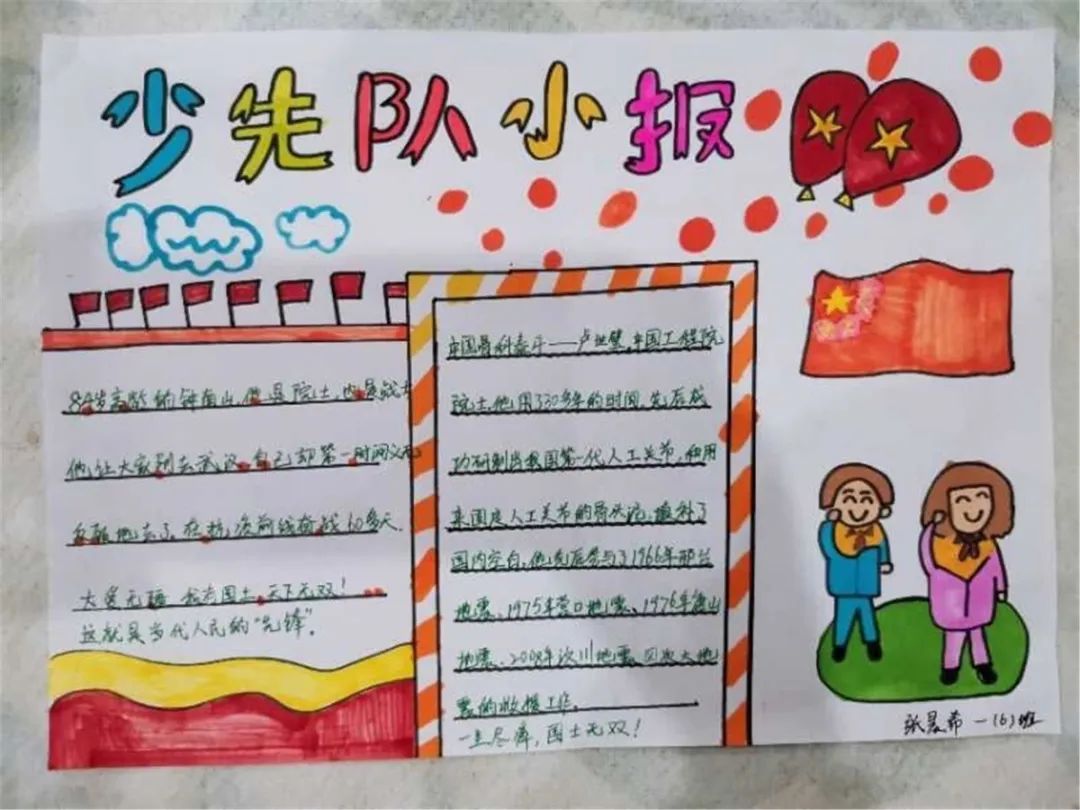 少先队小报
84岁高龄的钟南山,他是院士,也是战士
他让大家别去武汉,自己却第一时间义无
反顾地去了。在抗疫前线奋战60多天.
大爱无疆 我有国士,天下无双!
这就是当代人民的“先锋”。
中国骨科泰斗——卢世璧,中国工程院
院士,他用了30多年的时间,先后成
功研制出我国第一代人工关节,和用
来固定人工关节的骨水泥,填补了
国内空白,他先后参与了1966年邢台
地震、1975年营口地震、1976年唐山
地震、2008年汶川地震四次大地
震的救援工作。
一生尽瘁,国士无双!
张 希 一(6)班